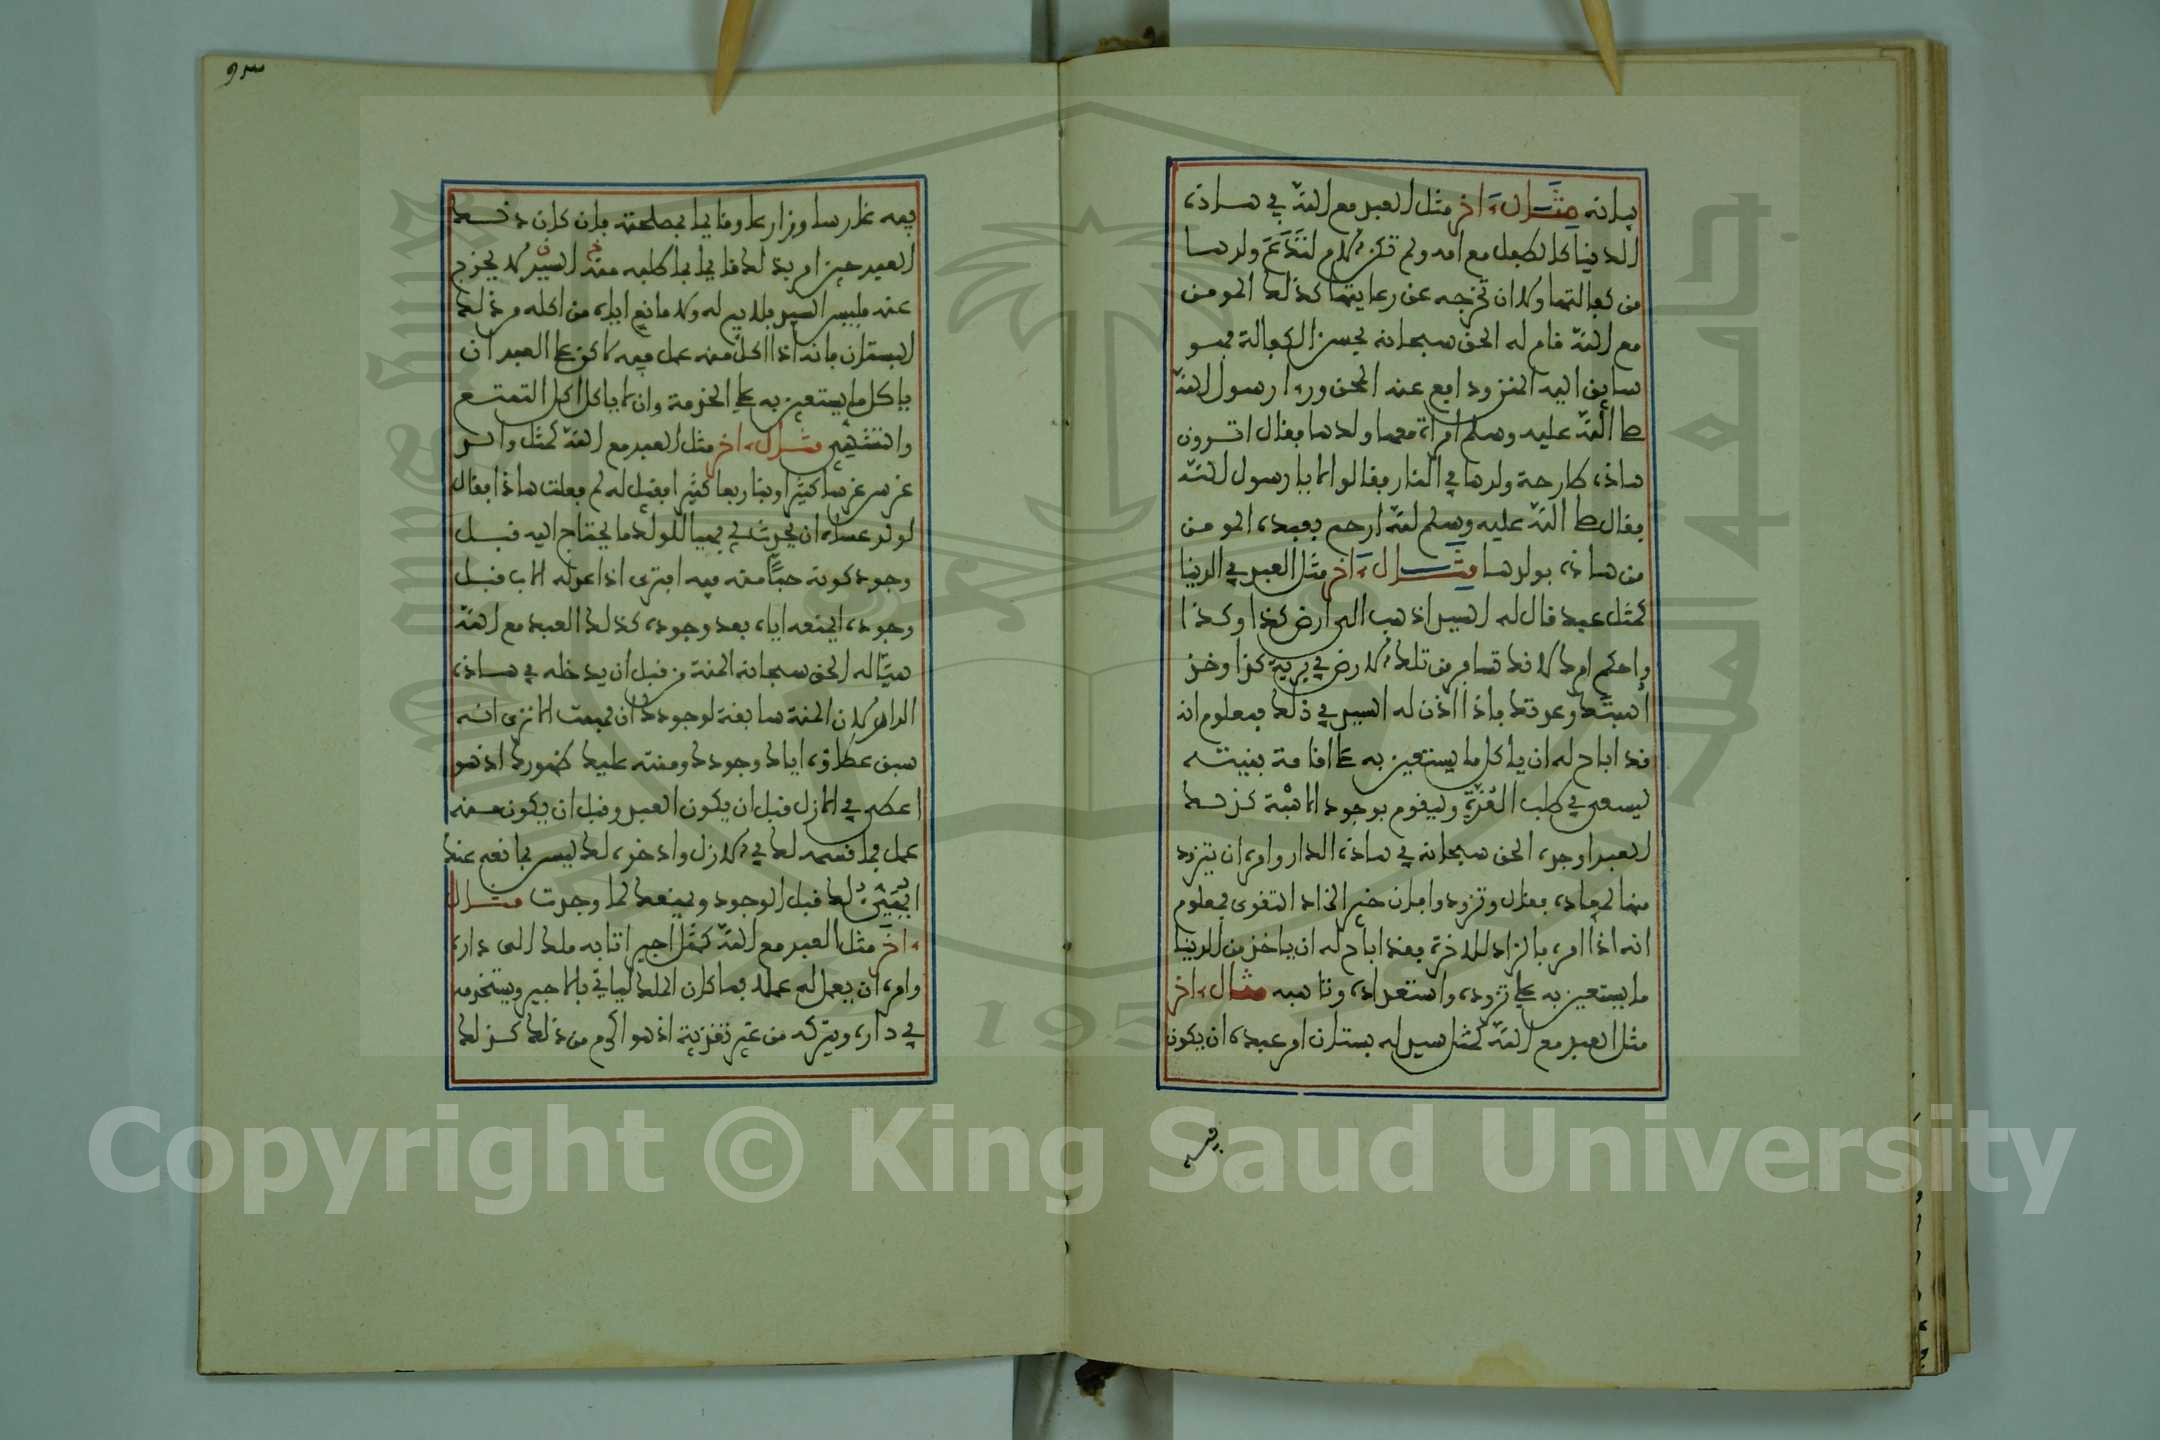 بدا نه مثال ءاخر مثل العبد مع الله في هاذه
الدنيا كالطفل مع امه ولم تكن الام لتدع ولدها
من كفالتها ولا ان تخرجه عن رعايتها كذلك المومن
مع الله قام له الحق سبحانه بحسن الكفالة فهو
سايق اليه المنن ودافع عنه المحن ورءا رسول الله
صلى الله عليه وسلم امراة معها ولدها فقال اترون
هاذه طارحة ولدها في النار فقالوا لا يا رسول الله
فقال صلى الله عليه وسلم لله ارحم بعبده المومن
من هاذه بولدها مثال ءاخر مثل العبد في الدنيا
كمثل عبد قال له السيد اذهب الى ارض كذا وكذا
واحكم امرك لانك تسافر من تلك الارض في برية كذا وخذ
اهبتك وعدتك فاذا اذن له السيد في ذلك فمعلوم انه
قد اباح له ان ياكل ما يستعين به على اقامة بنيته
ليسعى في طلب العدة وليقوم بوجود الاهبة كذلك
العبد اوجده الحق سبحانه في هاذه الدار وامره ان يتزود
منها لمعاده فقال وتزودوا فان خير الزاد التقوى فمعلوم
انه اذا امره بالزاد للاخرة فقد اباح له ان ياخذ من الدنيا
ما يستعين به على تزوده واستعداده وتاهبه مثال ءاخر
مثل العبد مع الله كمثل سيد له بستان امر عبده ان يكون
فيه
فيه غارسا وزارعا وقايما بمصلحته فان كان ذلك
العبد حين امر بذلك قايما فاكله منه السيد لا يخرج
عنه فليس السيد بلايم له ولا مانع اياه من اكله من ذلك
البستان فانه اذا اكل منه عمل فيه لاكن على العبد ان
ياكل ما يستعين به على الخدمة وان لا ياكل اكل التمتع
والتشهي مثال ءاخر مثل العبد مع الله كمثل والد
غرس غرسا كثيرا وبنا ربعا كثيرا فقيل له لم فعلت هاذا فقال
لولد عساه ان يحدث لي فهيا للولد ما يحتاج اليه قبل
وجود كونه حبا منه فيه افترى اذا عد له الاب قبل
وجوده ايمنعه اياه بعد وجوده كذلك العبد مع الله
هيا له الحق سبحانه المنة من قبل ان يدخله في هاذه
الدار لان المنة سابقة لوجودك ان فهمت الا ترى انه
سبق عطاؤه اياك وجودك ومنته عليك ظهورك اذ هو
اعطى في الازل قبل ان يكون العبد وقبل ان يكون منه
عمل فما قسمه لك في الازل وادخره لك ليس بمانعه عنك
لك قبل الوجود ويمنعك لما وجدت مثال
ءاخر مثل العبد مع الله كمثل اجير اتا به ملك الى داره
وامره ان يعمل له عملا فما كان الملك لياتي بالاجير ويستخدمه
في داره ويتركه من غير تغذية اذ هو اكرم من ذلك كذلك
٩٣
Copyright © King Saud University